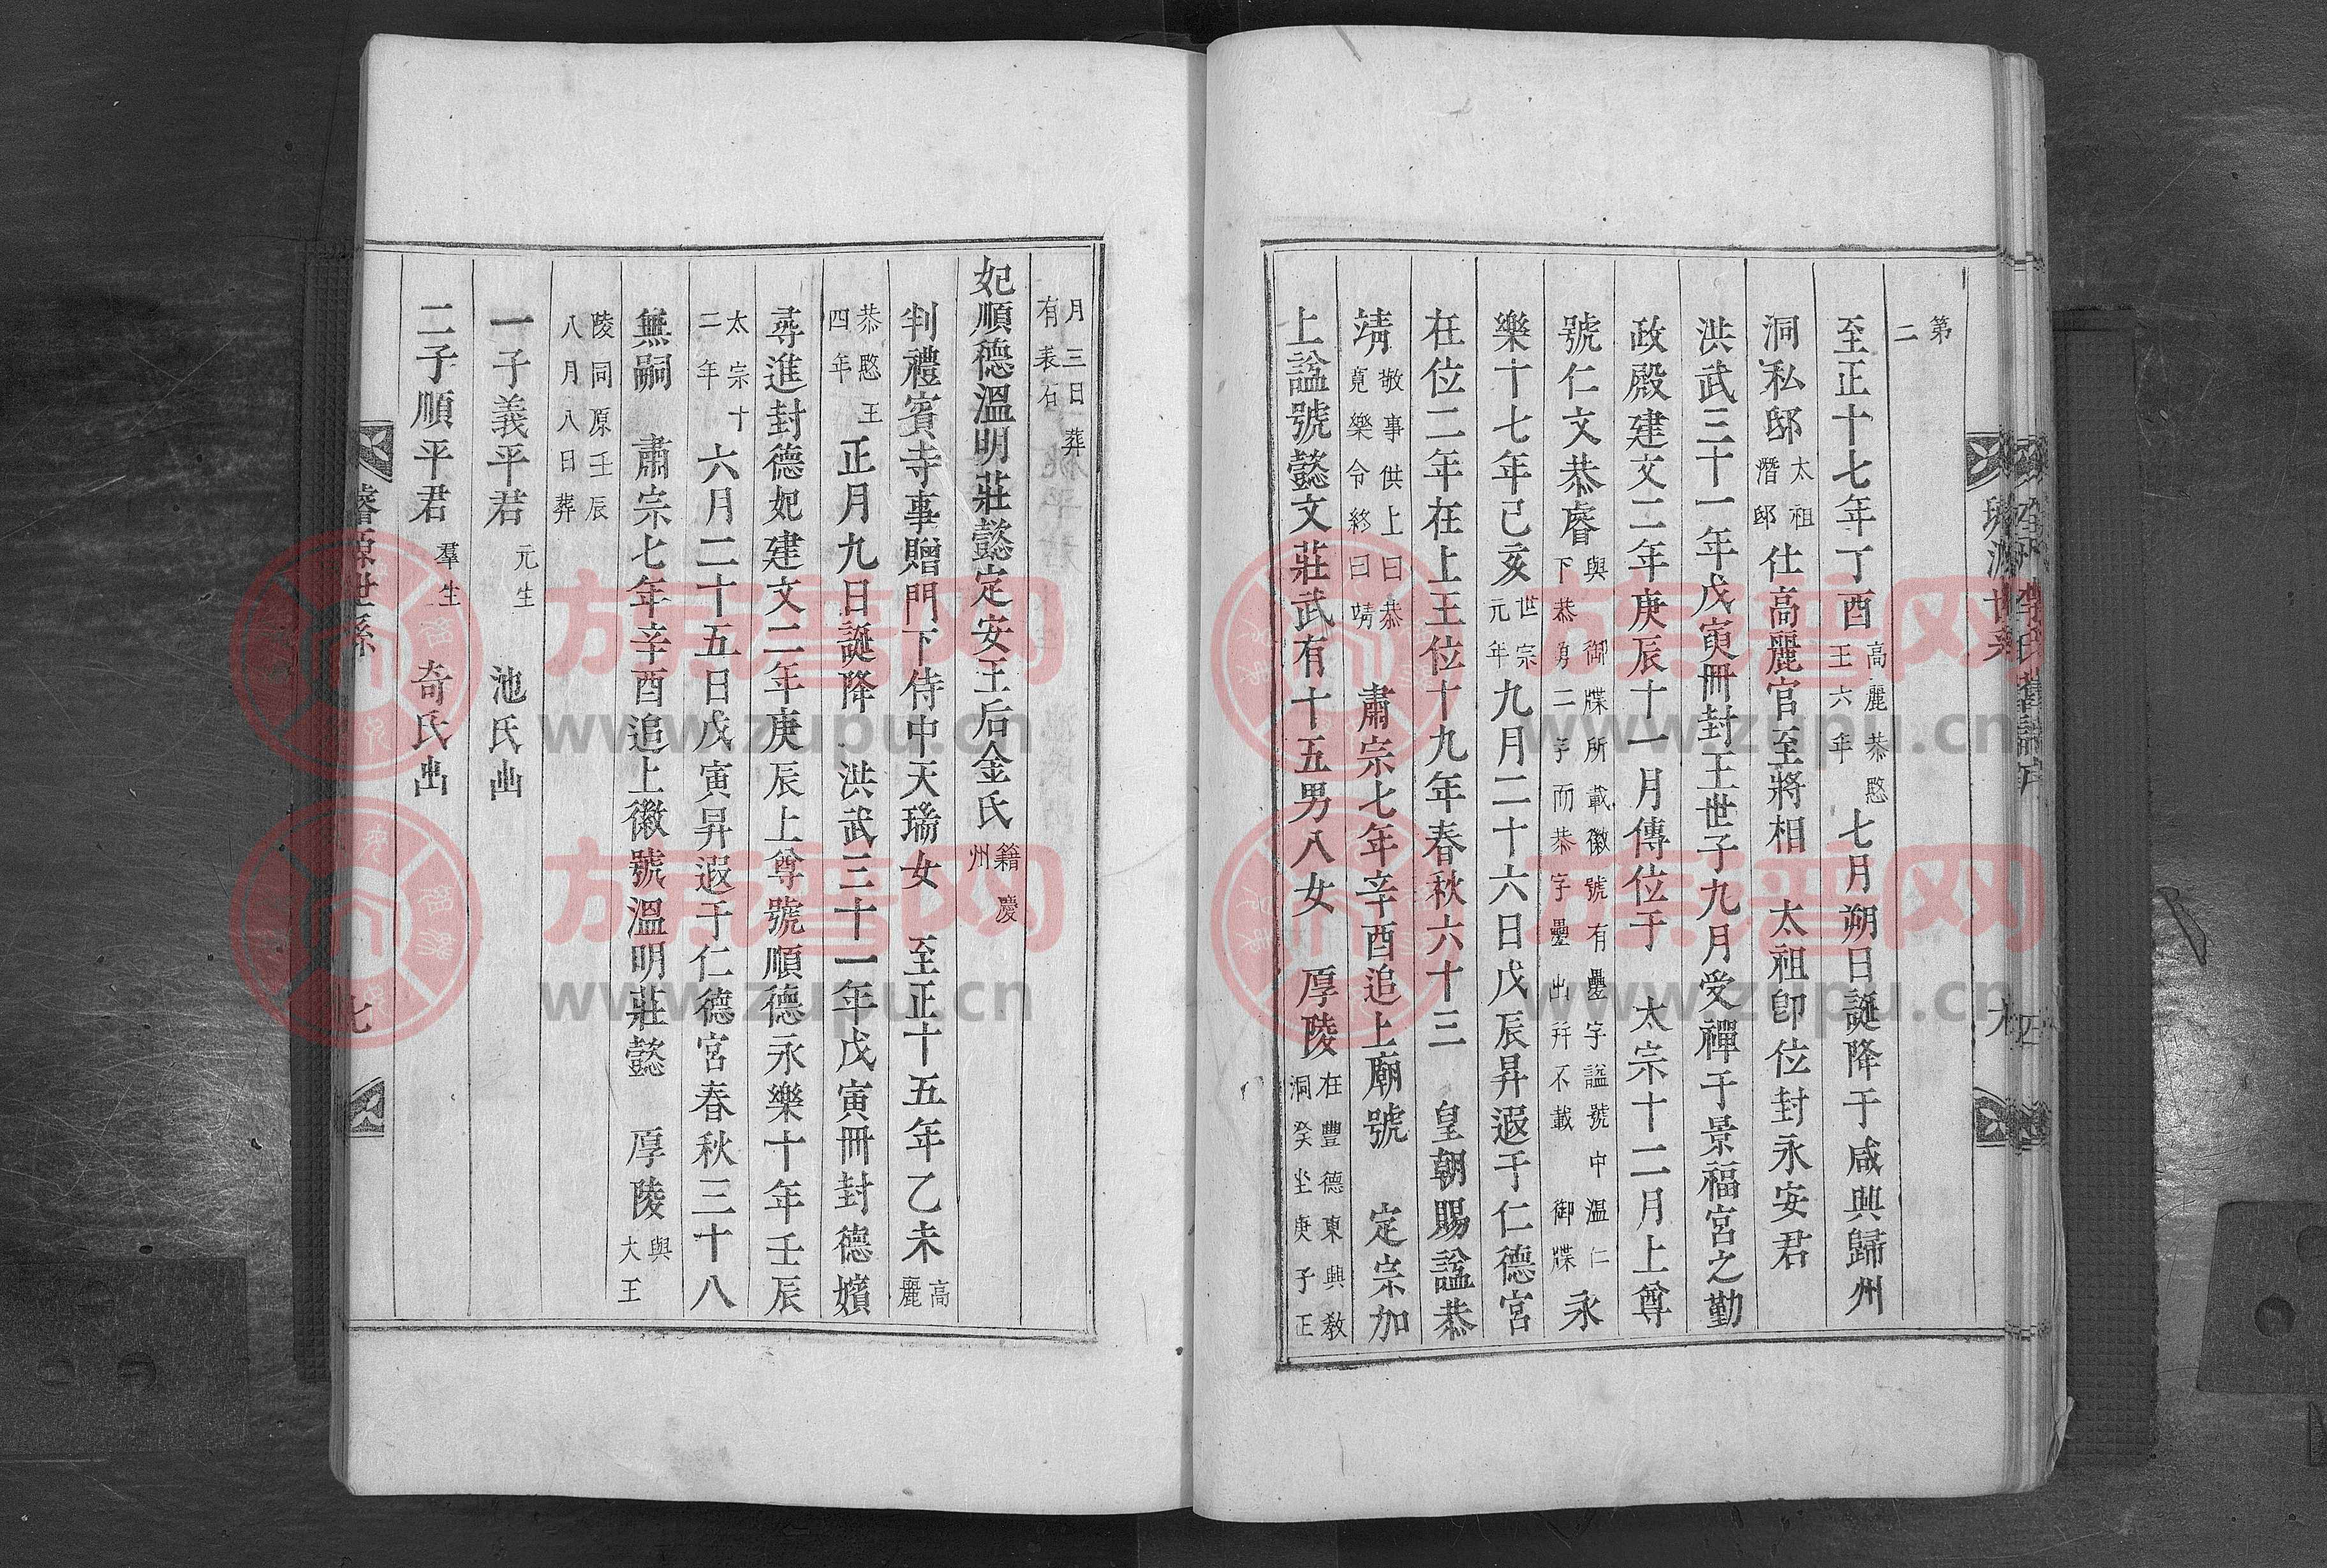 第二
至正十七年丁酉高麗恭愍王六年七月朔日誕降于咸興歸州
洞私邸太祖潛邸仕高麗官至將相 太祖卽位封永安君
洪武三十一年戊寅冊封王世子九月受禪于景福宮之勤
政殿建文二年庚辰十一月傳位于 太宗十二月上尊
號仁文恭睿與 御牒所載徽號有疊字諡號中溫仁下恭勇二字而恭字疊出幷不載 御牒永
樂十七年己亥世宗元年九月二十六日戊辰昇遐于仁德宮
在位二年在上王位十九年春秋六十三 皇朝賜諡恭
靖敬事供上曰恭寬樂令終曰靖 肅宗七年辛酉追上廟號 定宗加
上諡號懿文莊武有十五男八女 厚陵在豐德東興敎洞癸坐庚子正
月三日葬有表石
妃順德溫明莊懿定安王后金氏籍慶州
判禮賓寺事贈門下侍中天瑞女 至正十五年乙未高麗
恭愍王四年正月九日誕降 洪武三十一年戊寅冊封德嬪
尋進封德妃建文二年庚辰上尊號順德永樂十年壬辰
太宗十二年六月二十五日戊寅昇遐于仁德宮春秋三十八
無嗣 肅宗七年辛酉追上徽號溫明莊懿 厚陵與大王
陵同原壬辰八月八日葬
一子義平君元生 池氏出
二子順平君羣生 奇氏出
璿源世系 七
族譜网
www.zupu.cn
族譜网
www.zupu.cn
族譜网
www.zupu.cn
族譜网
www.zupu.cn